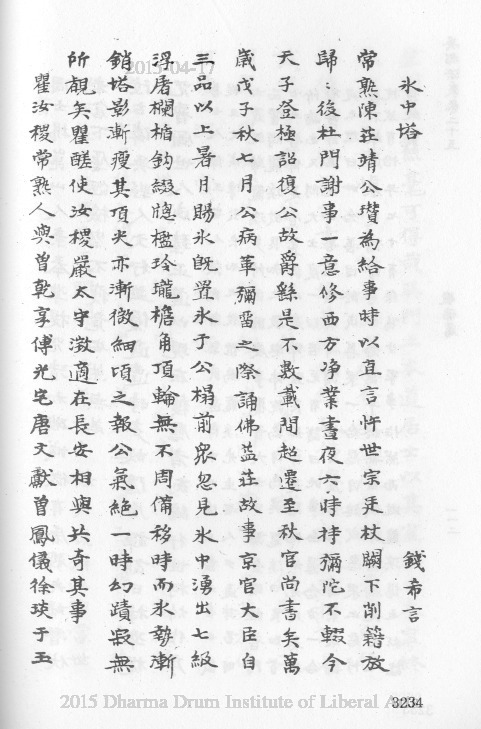 2015-04-17
冰中塔
錢希言
常熟陳莊靖公瓚為給事時以直言忤世宗廷杖闕下削籍放
歸後杜門謝事一意修西方净業晝夜六時持彌陀不輟今
天子登極詔復公故爵繇是不數載間超遷至秋官尚書矣萬
歲戊子秋七月公病革彌留之際誦佛益莊故事京官大臣自
三品以上暑月賜氷既置氷于公榻前眾忽見氷中湧出七級
浮屠欄楯鈎綴牕檻玲瓏檐角頂輪無不周備移時而氷勢漸
銷塔影漸瘦其頂尖亦漸微細頃之報公氣絕一時幻蹟寂無
所覩矣瞿醝使汝稷嚴太守澂適在長安相與共奇其事
瞿汝稷常熟人與曾乾亨傅光宅唐文獻曾鳳儀徐琰于玉
2015 Dharma Drum Institute of Liberal A
3234